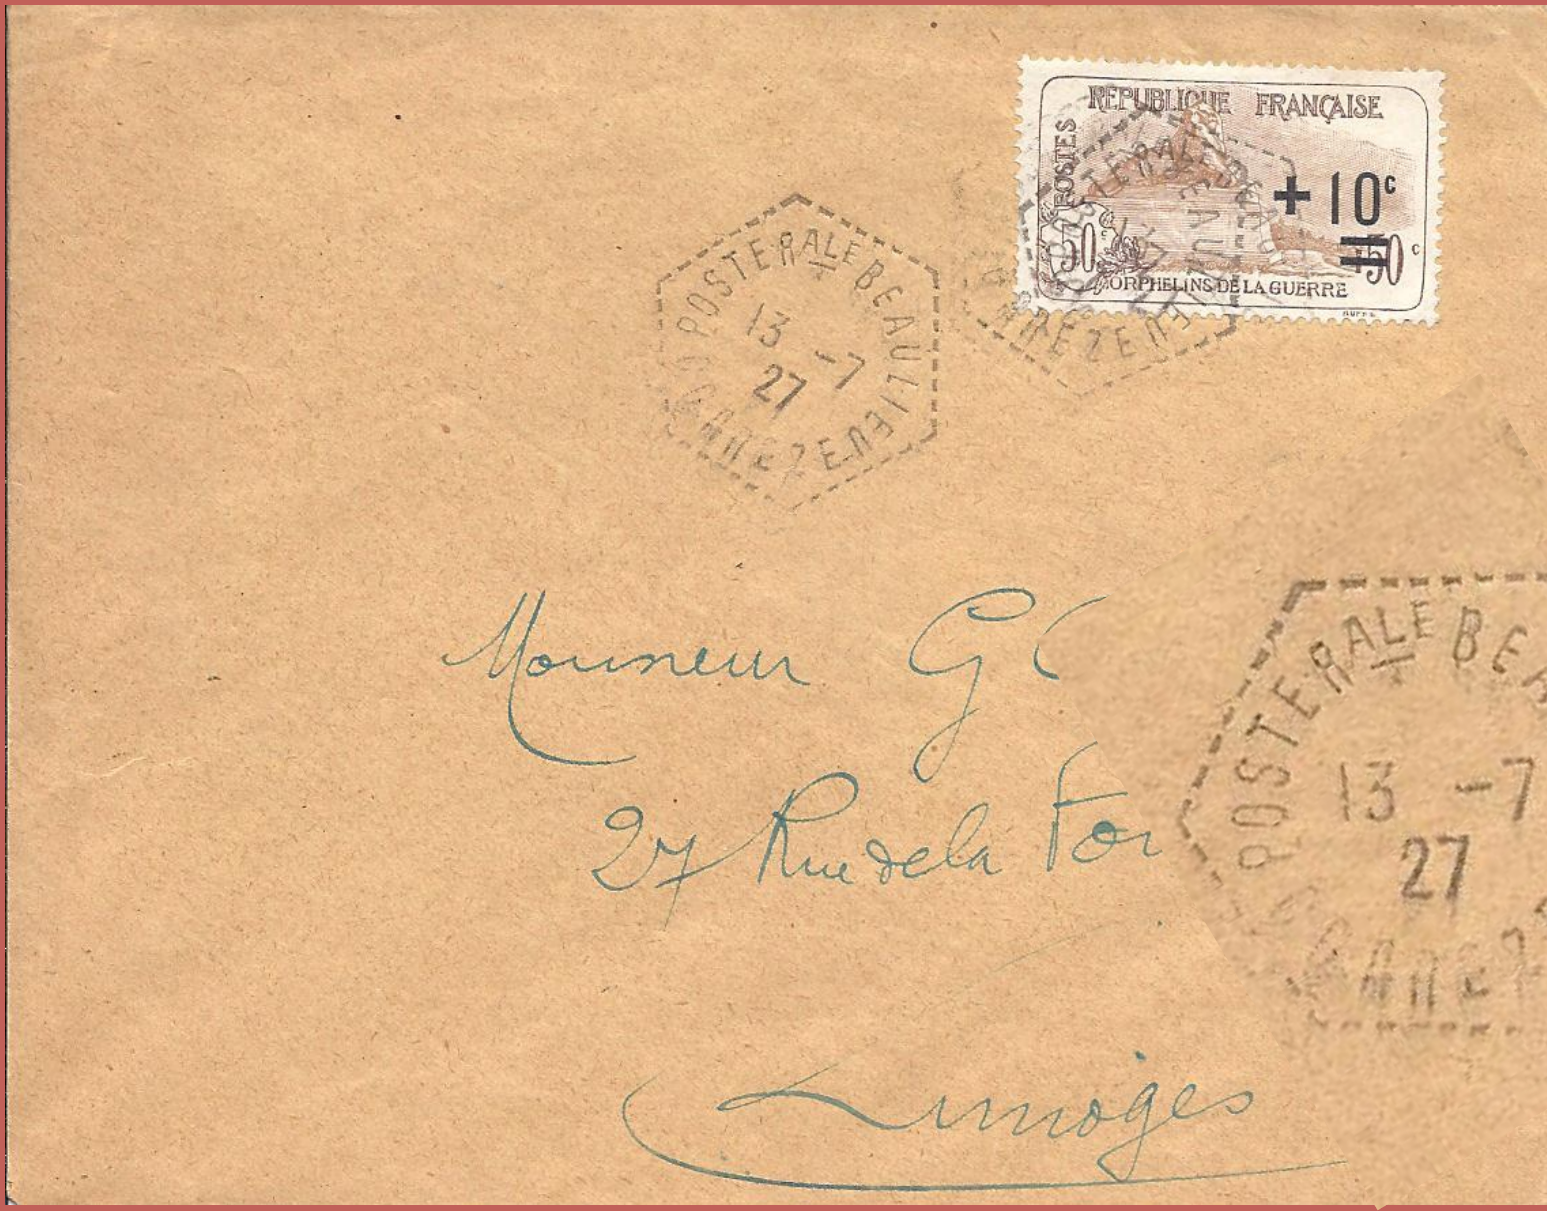 REPUBLIQUE FRANÇAISE
POSTES
+ 10c
50c
+50c
ORPHELINS DE LA GUERRE
POSTE RALE BEAULIEU
13 -7
27
CORREZE
POSTE RALE BEAULIEU
CORREZE
Monsieur G
27 Rue de la For
Limoges
POSTE RALE BEA
13 -7
27